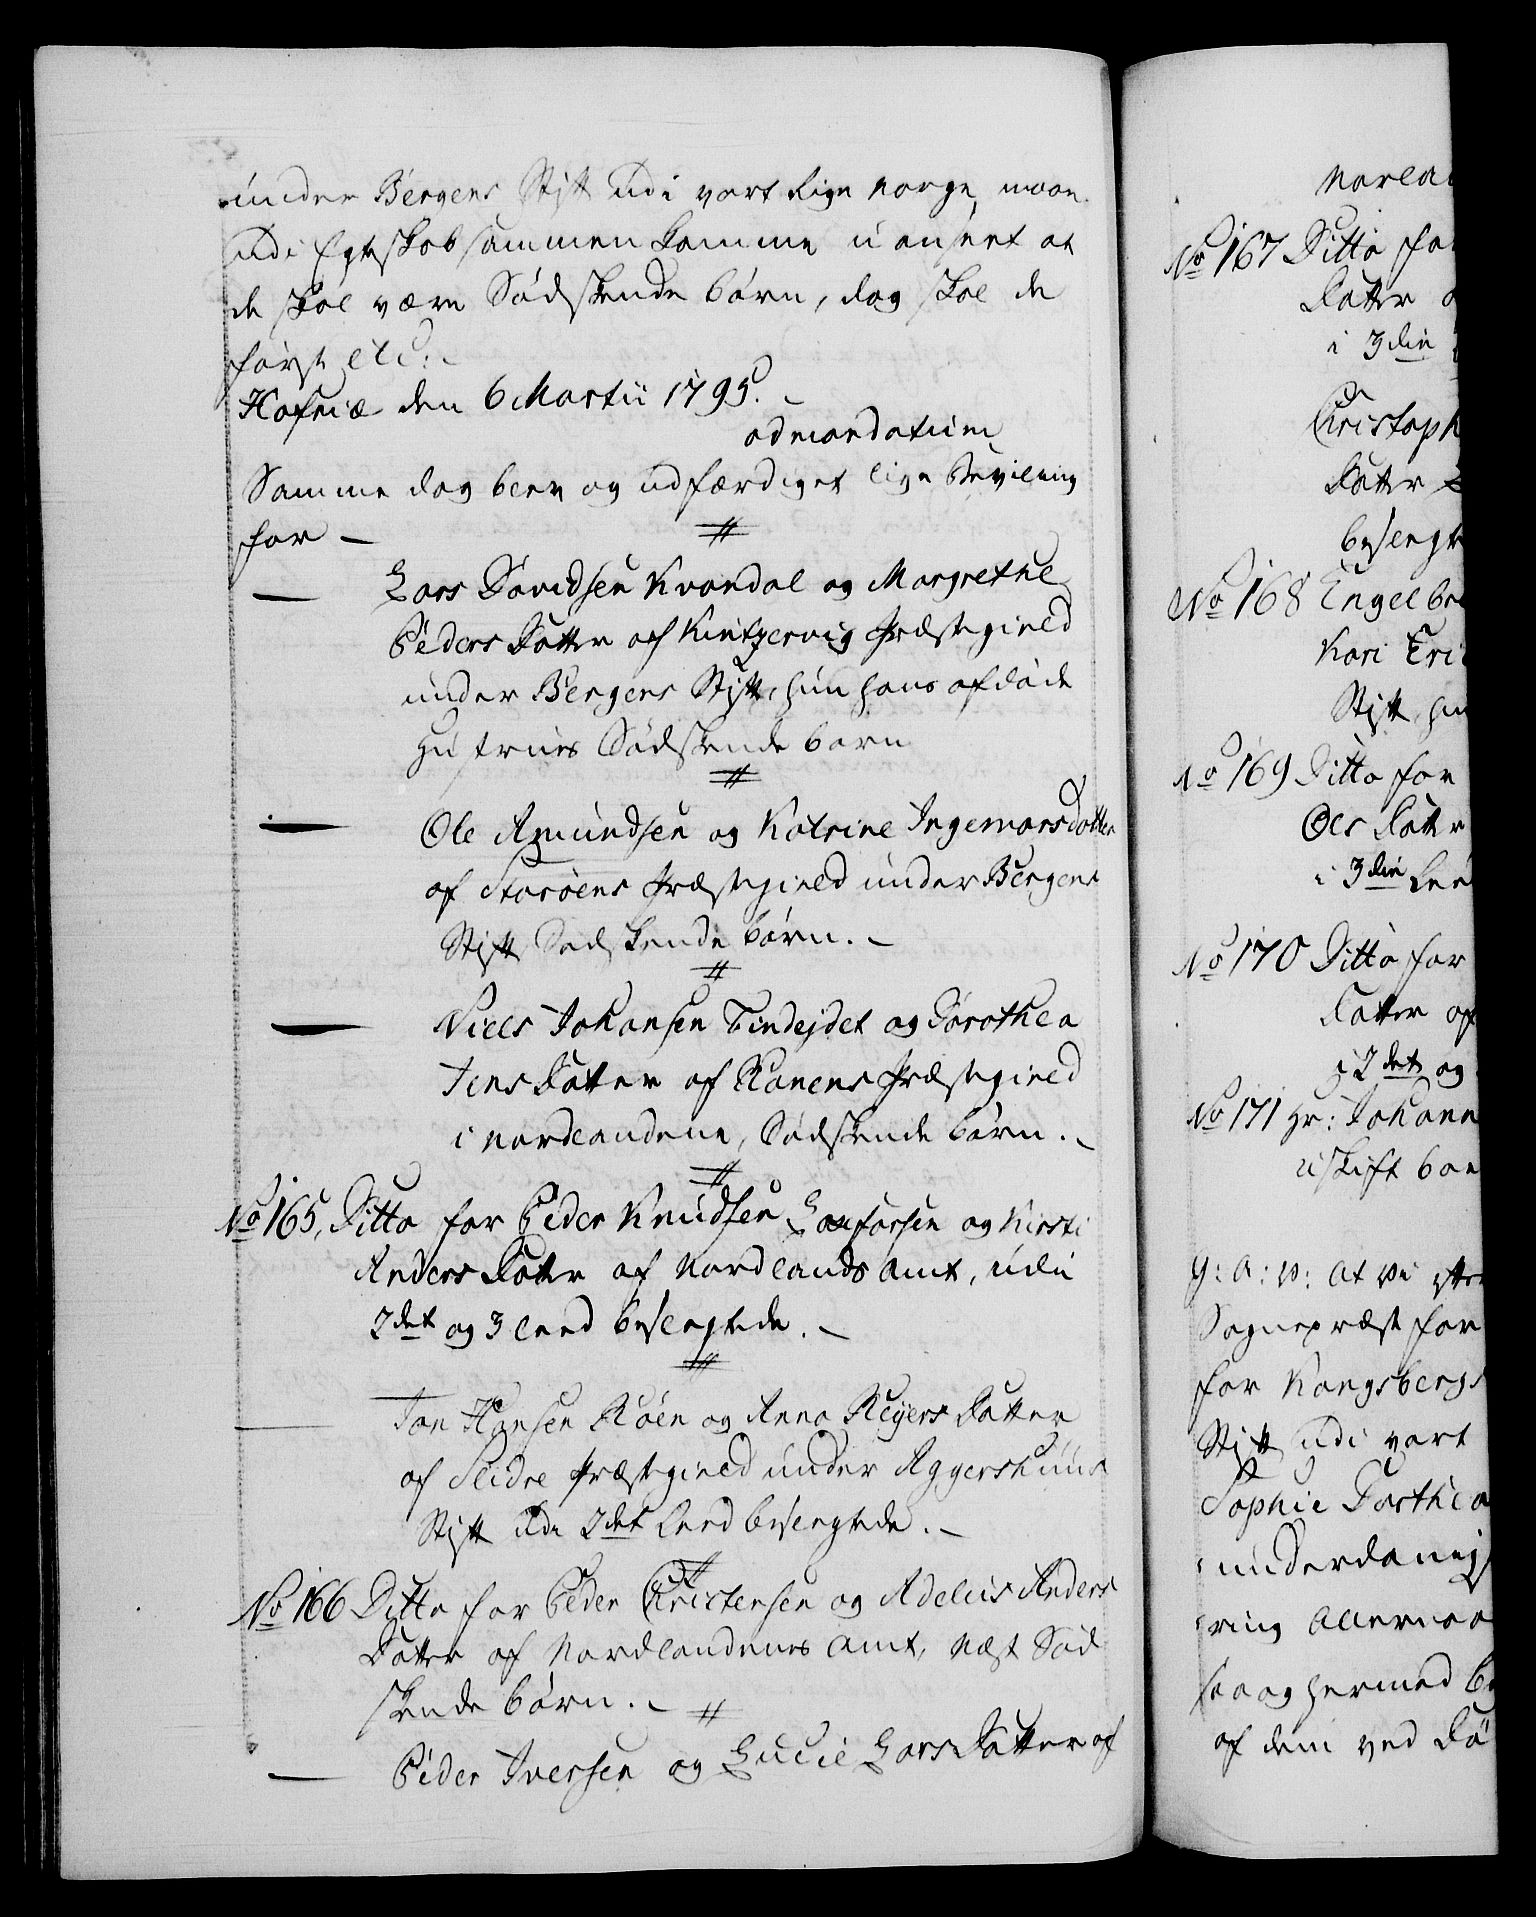 under Bergens Stift udi vort Rige Norge, maae
udi Egteskab sammen komme uanseet at
de skal være Sødskende børn, dog skal de
først etc:
Hafniæ den 6 Martii 1795.
ad mandatum
Samme dag blev og udfærdiget lige Bevilling
for —
Lars Davidsen Kvandal og Margrethe
Peders Datter af Kintzervig Præstegield
under Bergens Stift, hun hans afdøde
Hustrues Sødskende barn
Ole Amundsen og Katrine Ingemarsdatter
af Storøens Præstegield under Bergens
Stift Sødskende børn.
Niels Johansen Bindejdet og Dorothea
Jens Datter af Ranens Præstegield
i Nordlandene, Sødskende børn.
No 165, Ditto for Peder Knudsen og Kirsti
Anders Datter af Nordlands Amt, udi
2det og 3 Leed beslegtede.
Jon Hansen Röen og Anna Reyers Datter
af Slidre Præstegield under Aggershuus
Stift udi 2det Leed beslegtede.
No 166 Ditto for Peder Christensen og Adelus Anders
Datter af Nordlandenes Amt, Næst Sød
skende børn.
Peder Iversen og Lucie Lars Datter af
No 167 Ditto for
Datter
i 3die
Christoph
Datter
beslegt
No 168 Engelbre
Kari Eri
Stift, hu
No 169 Ditto for
Oles Datter
i 3die Lee
No 170 Ditto for
Datter af
i 2det og
No 171 Hr: Johann
uskift boe
G: A: V: at vi efter
Sognepræst for
for Kongsbergs
Stift udi vort
Sophie Dorthea
underdanigs
ring allernaa
saa og hermed be
af dem ved Dö